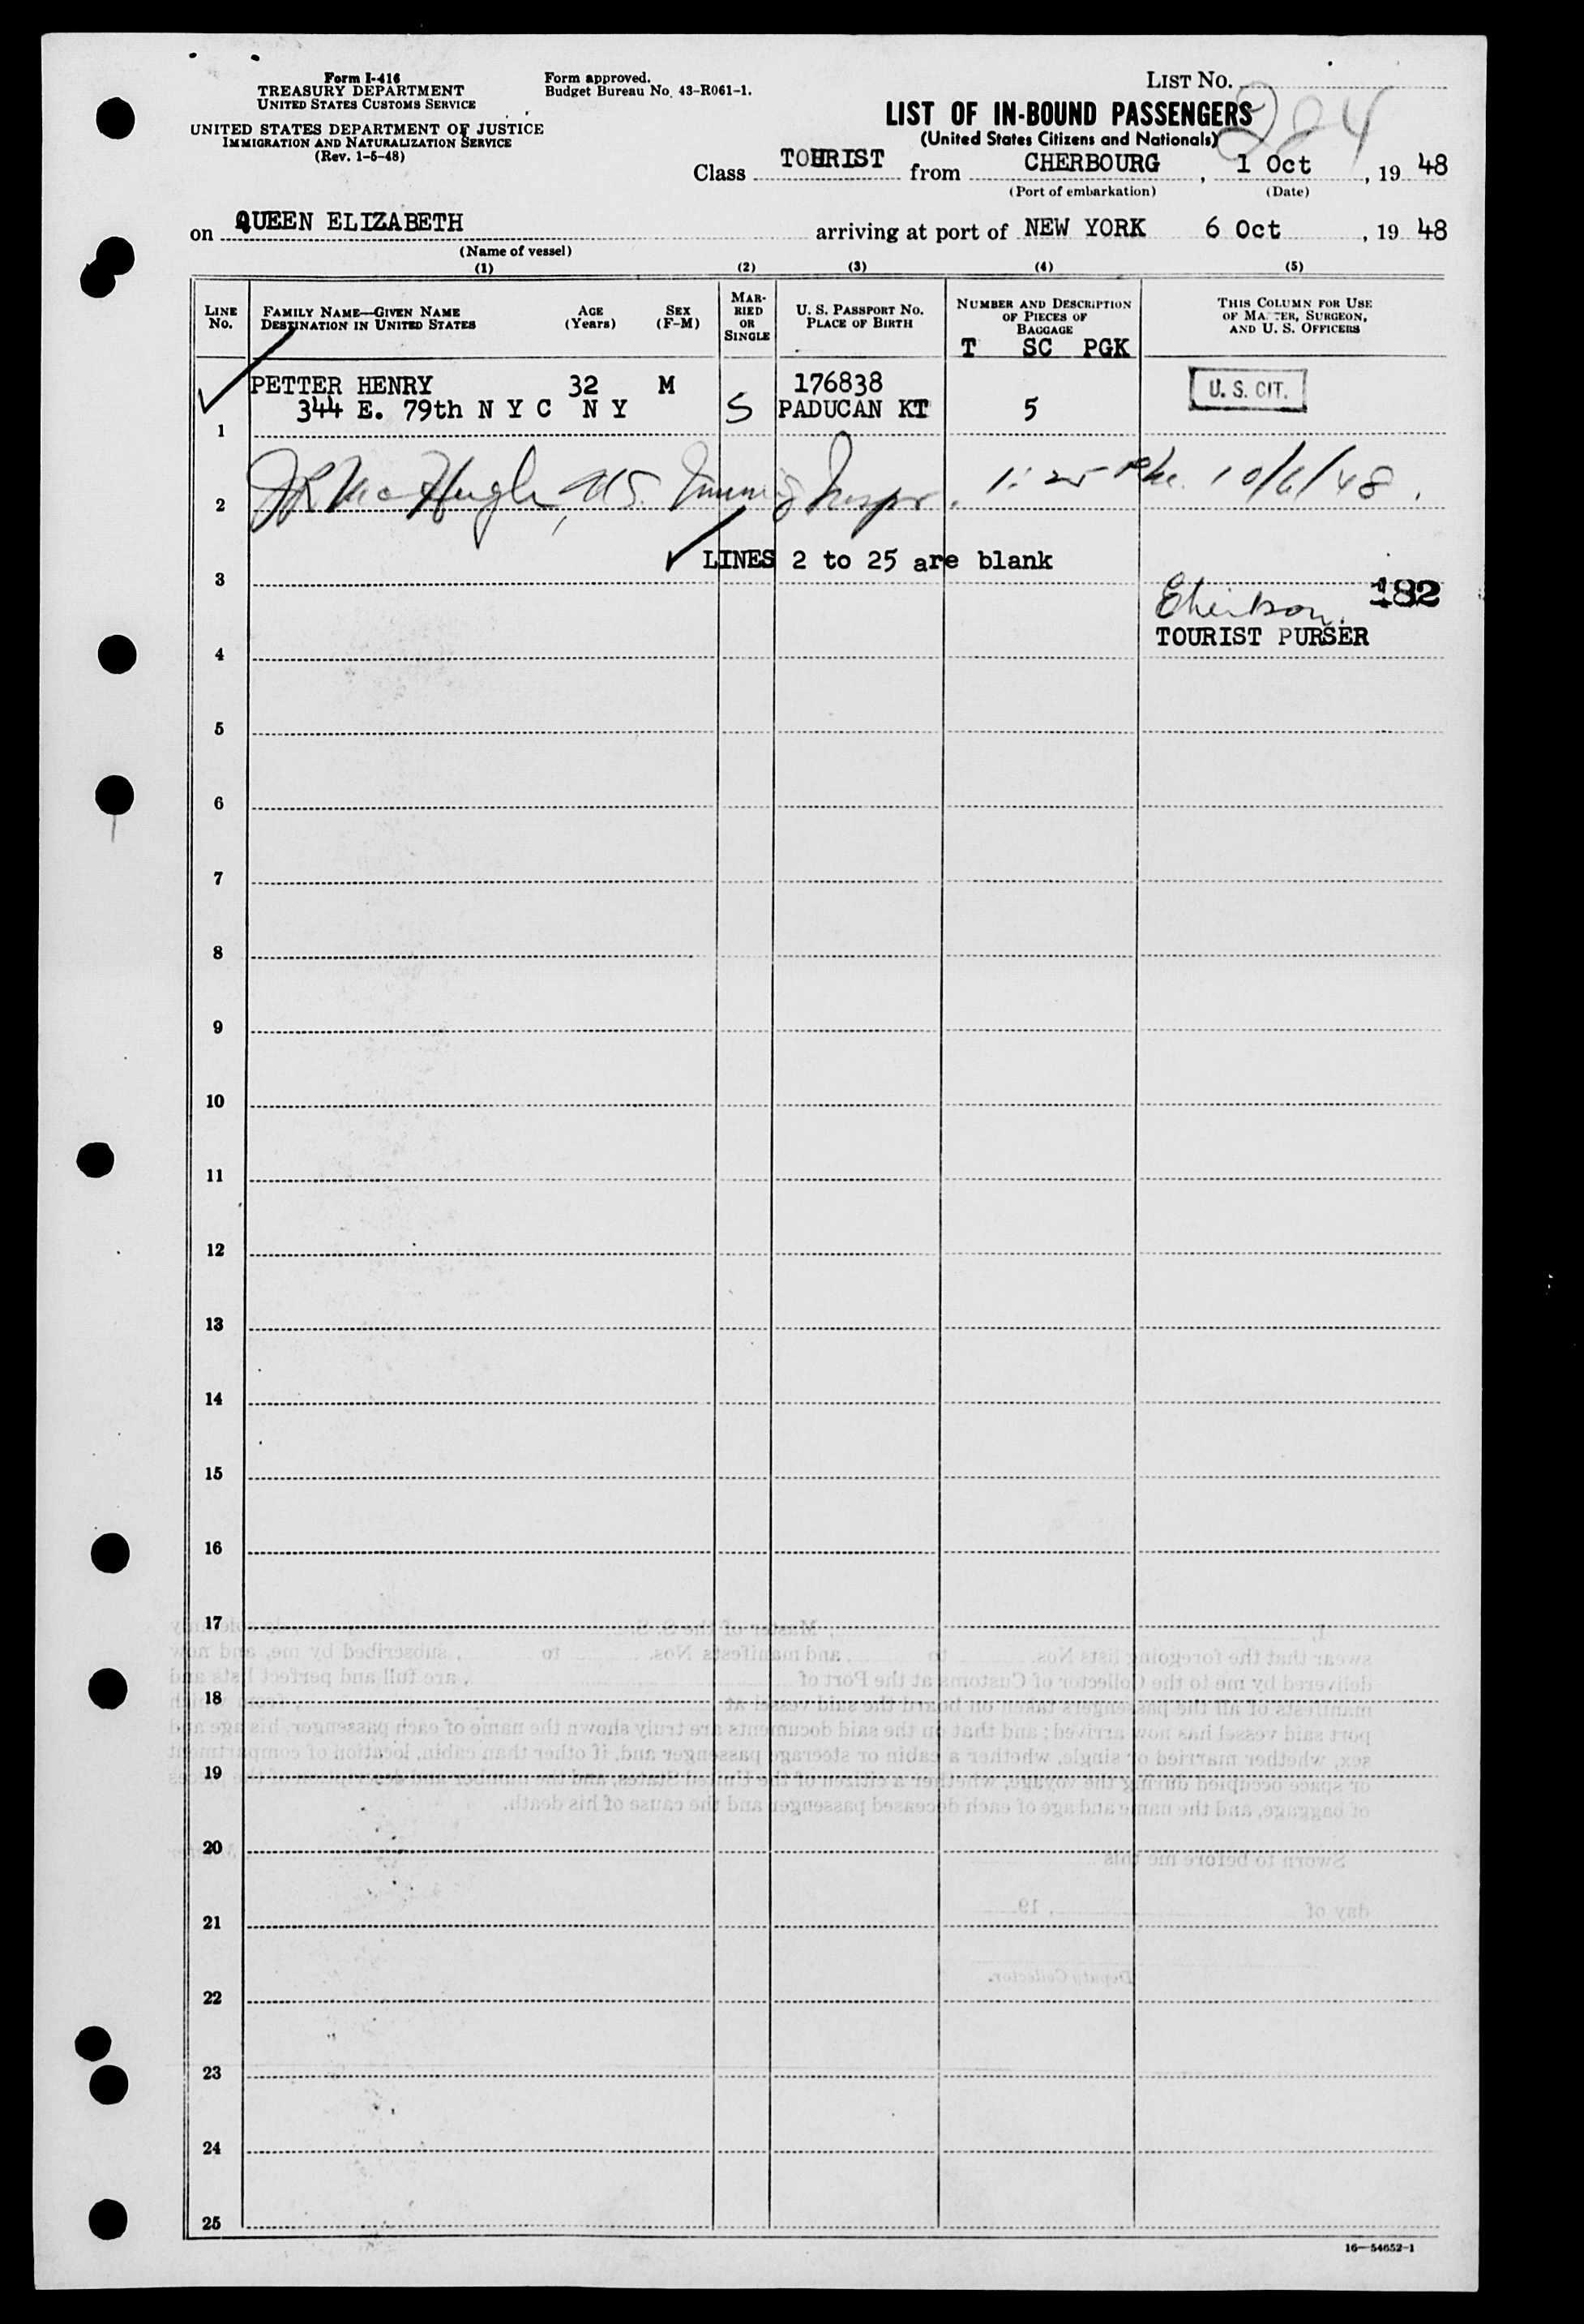 Form I-416
TREASURY DEPARTMENT
UNITED STATES CUSTOMS SERVICE
UNITED STATES DEPARTMENT OF JUSTICE
IMMIGRATION AND NATURALIZATION SERVICE
(Rev. 1-5-48)
Form approved.
Budget Bureau No. 43-R061-1.
LIST NO.
LIST OF IN-BOUND PASSENGERS
(United States Citizens and Nationals)
Class TOURIST from CHERBOURG, 1 Oct, 19 48
(Port of embarkation) (Date)
on QUEEN ELIZABETH arriving at port of NEW YORK 6 Oct, 19 48
(Name of vessel)
(1) (2) (3) (4) (5)
LINE No.
FAMILY NAME—GIVEN NAME
DESTINATION IN UNITED STATES
AGE (Years)
SEX (F-M)
MARRIED OR SINGLE
U. S. PASSPORT NO.
PLACE OF BIRTH
NUMBER AND DESCRIPTION OF PIECES OF BAGGAGE
T SC PGK
THIS COLUMN FOR USE OF MASTER, SURGEON, AND U. S. OFFICERS
PETTER HENRY 32 M 176838 U. S. CIT.
344 E. 79th N Y C N Y S PADUCAN KT 5
1
2 McHugh, US. Immig Inspr. 1:25 PM. 10/6/48.
LINES 2 to 25 are blank
3
182
TOURIST PURSER
4
5
6
7
8
9
10
11
12
13
14
15
16
17
18
19
20
21
22
23
24
25
16—54652-1